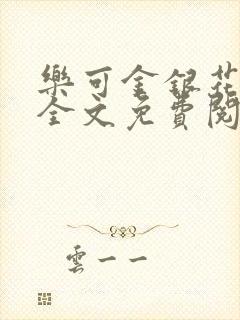 樂可金銀花
全文免費閱
雲一一